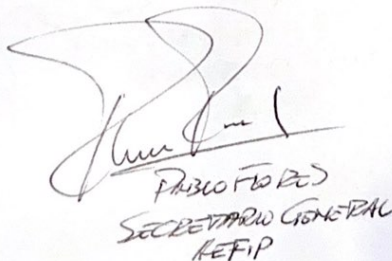 PABLO FLORES
SECRETARIO GENERAL
AEFIP